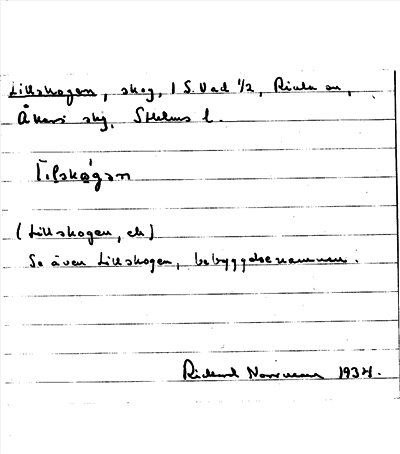 Lillskogen, skog, 1 S. Vad 1/2, Riala sn,
Åkers skg, Sthlms l.
Lilskogen
(Lillskogen, ek)
Se även Lillskogen, bebyggelsenamnen.
Rickard 1934.